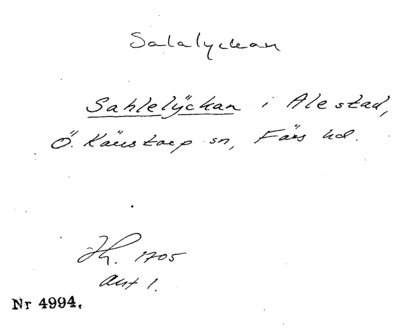 Salalyckan
Sahlelÿckan i Alestad,
Ö. Kärstorp sn, Färs hd.
Jh. 1705
akt 1.
Nr 4994.